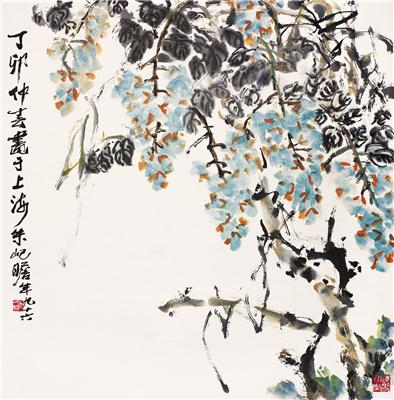 丁卯仲春画于上海朱屺瞻年九十六